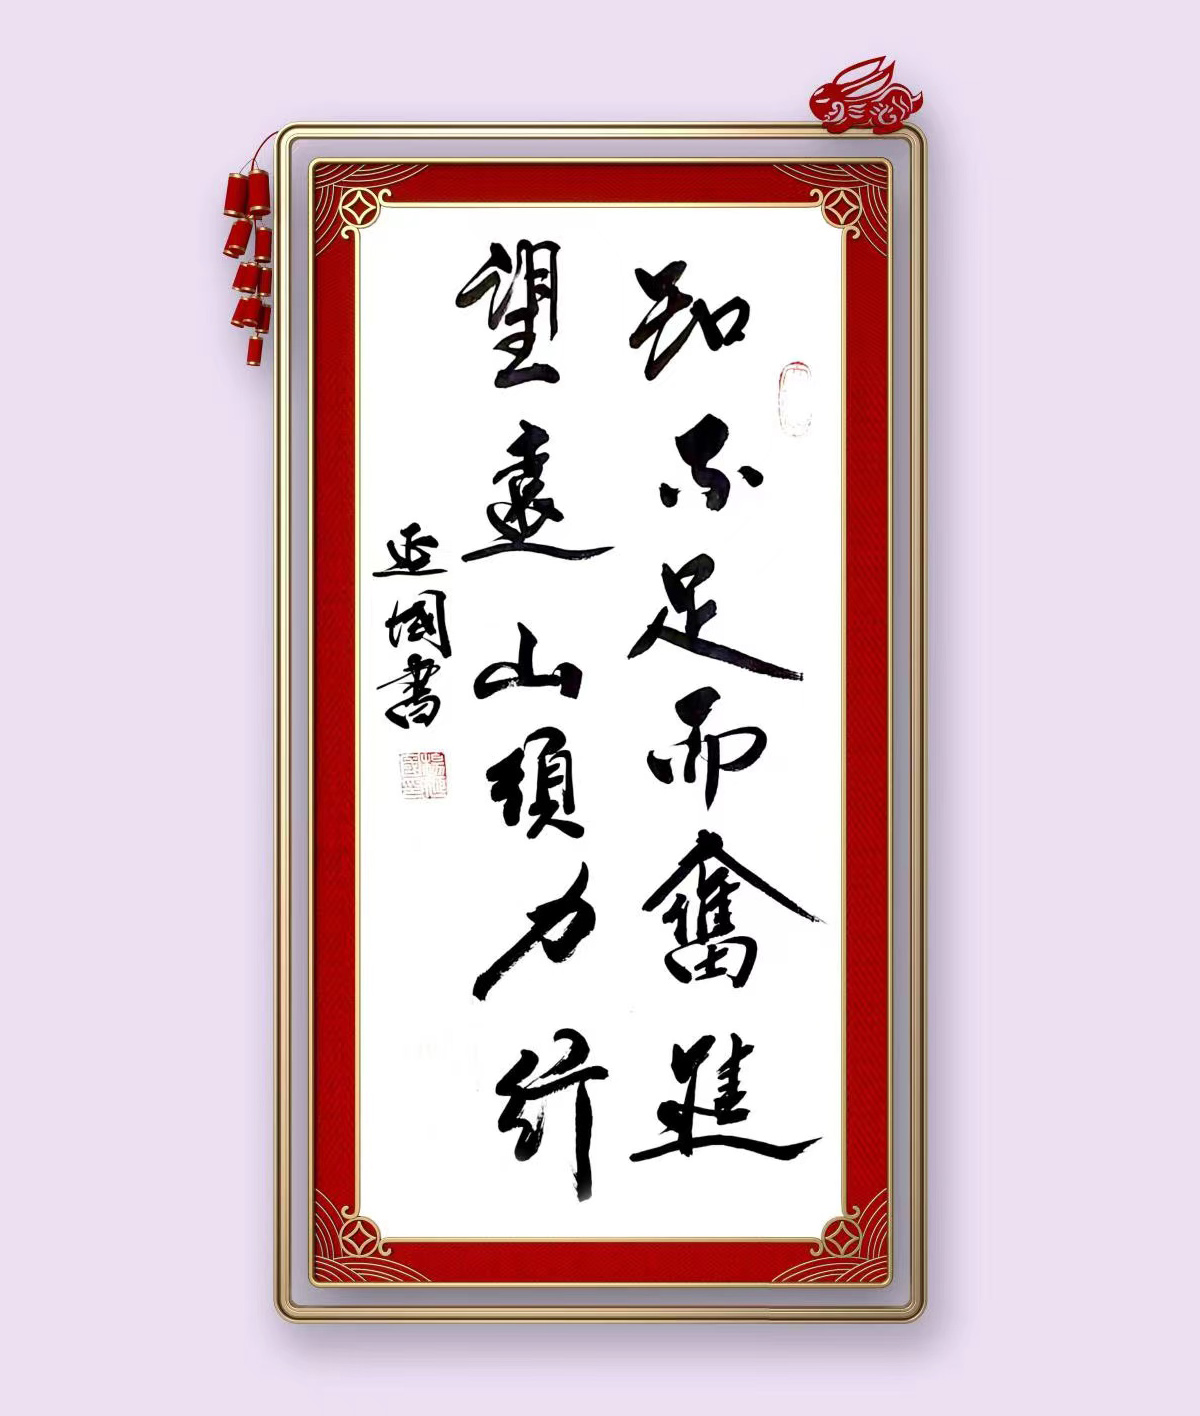 知不足而奮進
望遠山須力行
延國書